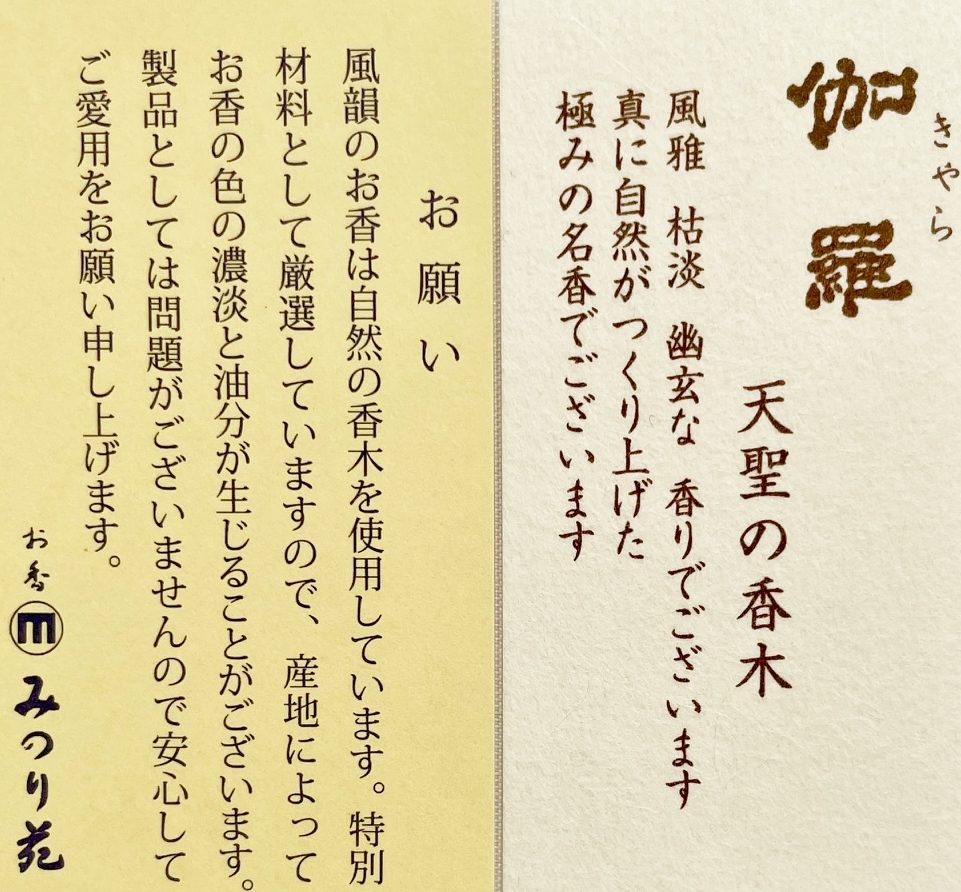 きゃら
伽羅
天聖の香木
風雅 枯淡 幽玄な 香りでございます
真に自然がつくり上げた
極みの名香でございます
お願い
風韻のお香は自然の香木を使用しています。特別
材料として厳選していますので、産地によって
お香の色の濃淡と油分が生じることがございます。
製品としては問題がございませんので安心して
ご愛用をお願い申し上げます。
お香 m みのり苑